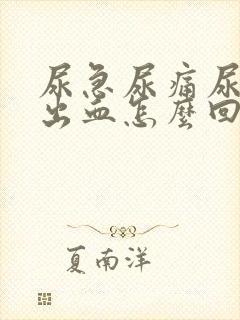 尿急尿痛尿
出血怎麼回
夏南洋